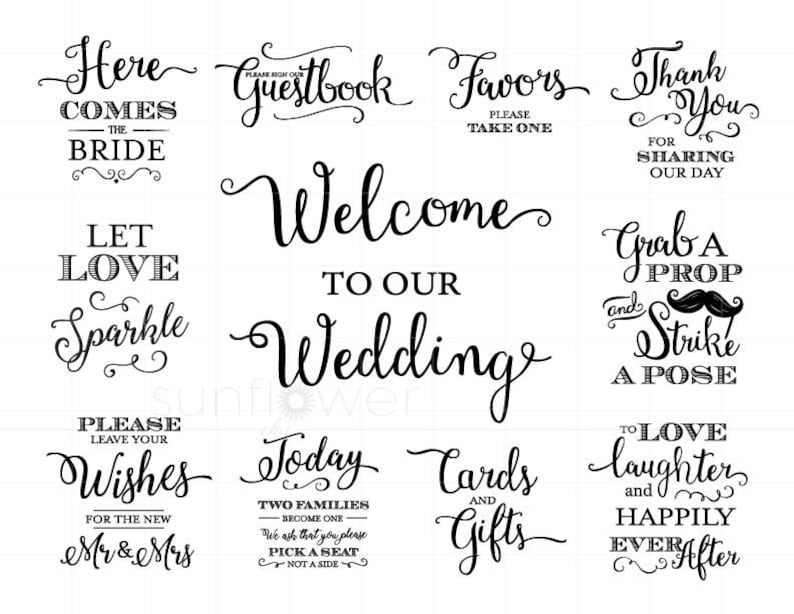 Here
COMES
THE
BRIDE
PLEASE SIGN OUR
Guestbook
Favors
PLEASE
TAKE ONE
Thank
You
FOR
SHARING
OUR DAY
LET
LOVE
Sparkle
Welcome
TO OUR
Wedding
Grab A
PROP
and
Strike
A POSE
sunflower
PLEASE
LEAVE YOUR
Wishes
FOR THE NEW
Mr & Mrs
Today
TWO FAMILIES
BECOME ONE
We ask that you please
PICK A SEAT
NOT A SIDE
Cards
AND
Gifts
TO LOVE
laughter
and
HAPPILY
EVER After